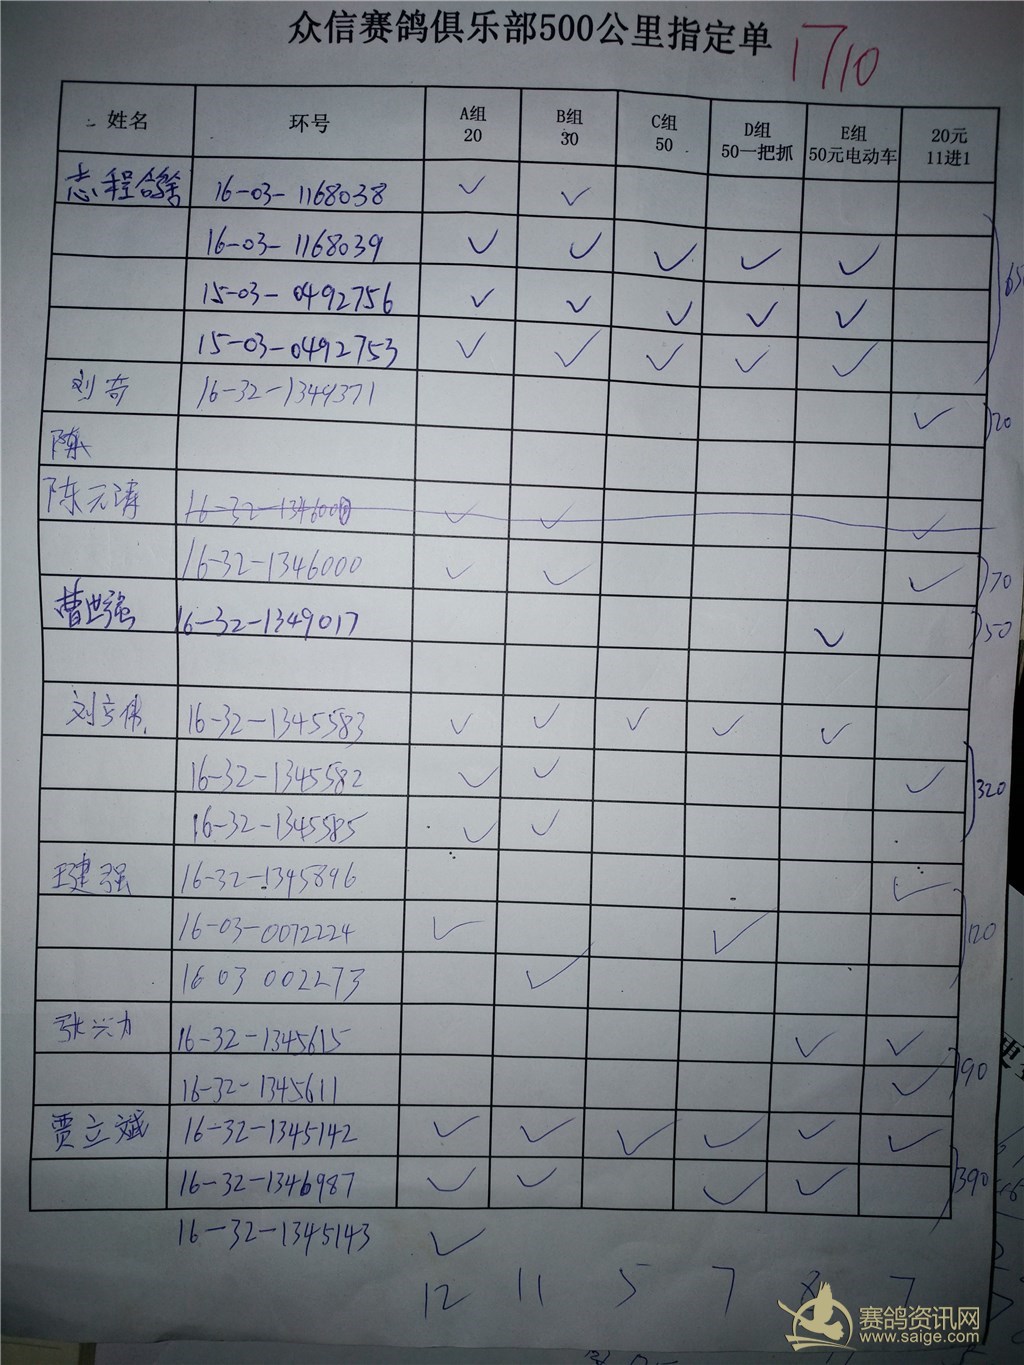 众信赛鸽俱乐部500公里指定单 1710
姓名 环号 A组 20 B组 30 C组 50 D组 50一把抓 E组 50元电动车 20元 11进1
志程鸽舍 16-03-1168038 ✓ ✓
16-03-1168039 ✓ ✓ ✓ ✓ ✓
15-03-0492756 ✓ ✓ ✓ ✓ ✓
15-03-0492753 ✓ ✓ ✓ ✓ ✓ 650
刘奇 16-32-1349371 ✓ 20
陈
陈元涛 16-32-1346000 ✓ ✓ ✓
16-32-1346000 ✓ ✓ ✓ 70
曹世强 16-32-1349017 ✓ 50
刘立伟 16-32-1345583 ✓ ✓ ✓ ✓ ✓
16-32-1345582 ✓ ✓ ✓ 320
16-32-1345585 ✓ ✓
王建强 16-32-1345896 ✓
16-03-0072224 ✓ ✓ 120
16 03 002273 ✓
张兴力 16-32-1345615 ✓ ✓
16-32-1345611 ✓ 90
贾立斌 16-32-1345142 ✓ ✓ ✓ ✓ ✓ ✓
16-32-1346987 ✓ ✓ ✓ ✓ 390
16-32-1345143 ✓
12 11 5 7 8 7
赛鸽资讯网
www.saige.com